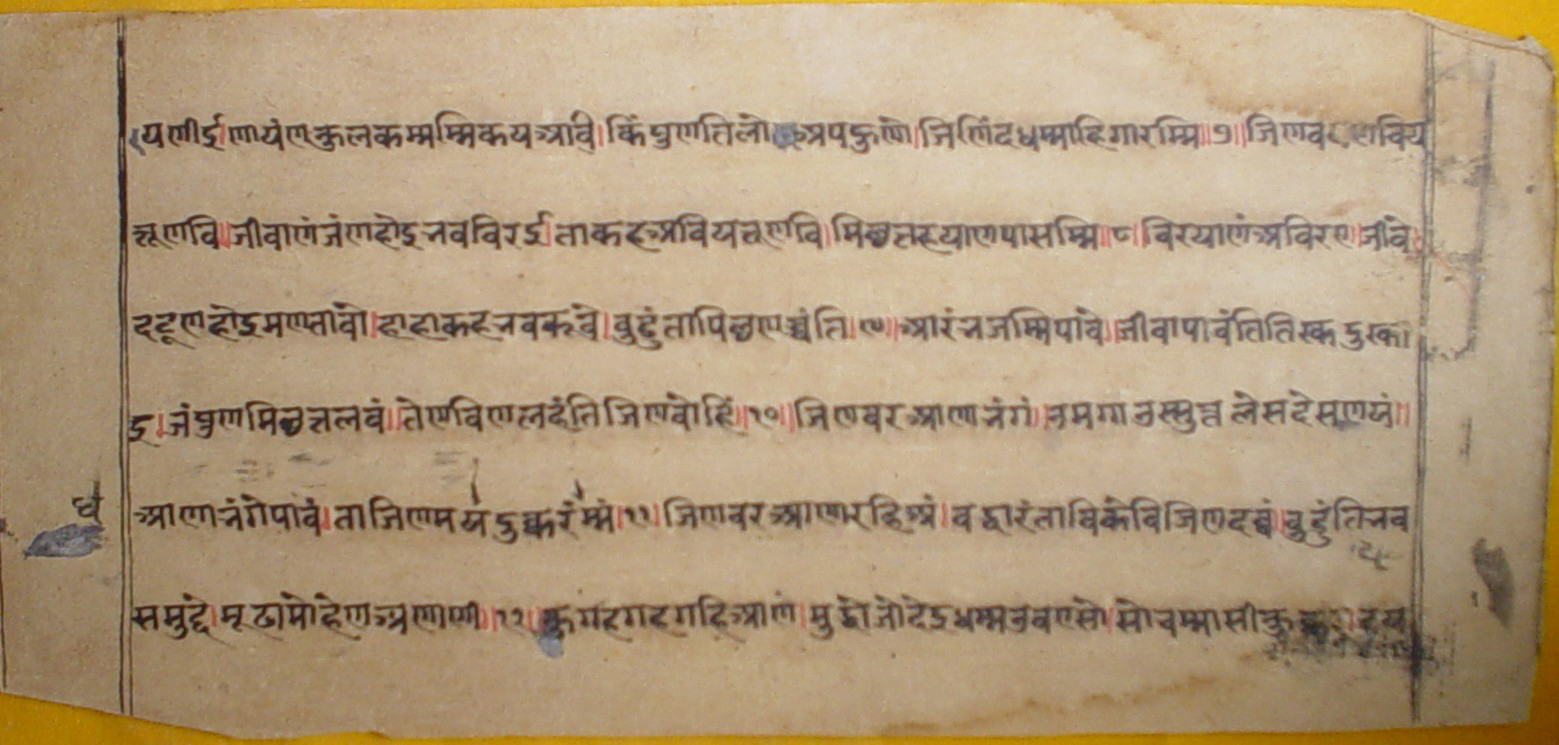 यणीईणायंणकुलकम्मम्मिकयआवि।किंपुणतिलोअपहुणो।जिणिंदधम्माहिगारम्मि॥७॥जिणवरणविय
न्नूणवि।जीवाणंजंणहोइभवविरई।ताकहअवियन्नूणवि।मिच्छत्तहयाणपासम्मि॥८।विरयाणंअविरए।जीवे
दट्ठूणहोइमणतावो।हाहाकहभवकूवे।वुडुंतापिच्छणच्चंति॥९॥आरंभजम्मिपावे।जीवापावंतितिरकदुरका
इ।जंपुणमिच्छत्तलवं।तेणविणलहंतिजिणवोहिं॥१०॥जिणवरआणाभंगं।उमगाउस्सुत्तलेसदेसणयं॥
आणाभंगेपावं।ताजिणमयदुक्करंम्मं।११।जिणवरआणारहिअं।वद्धारंताविकेविजिणदव्वं।वुडुंतिभव
ध
समुद्दे।मूढामोहेणअण्णाणी॥१२॥कुगहगहगहिआणं।मुद्धोजोदेइधम्मउवएसो।सोचम्मासीकु